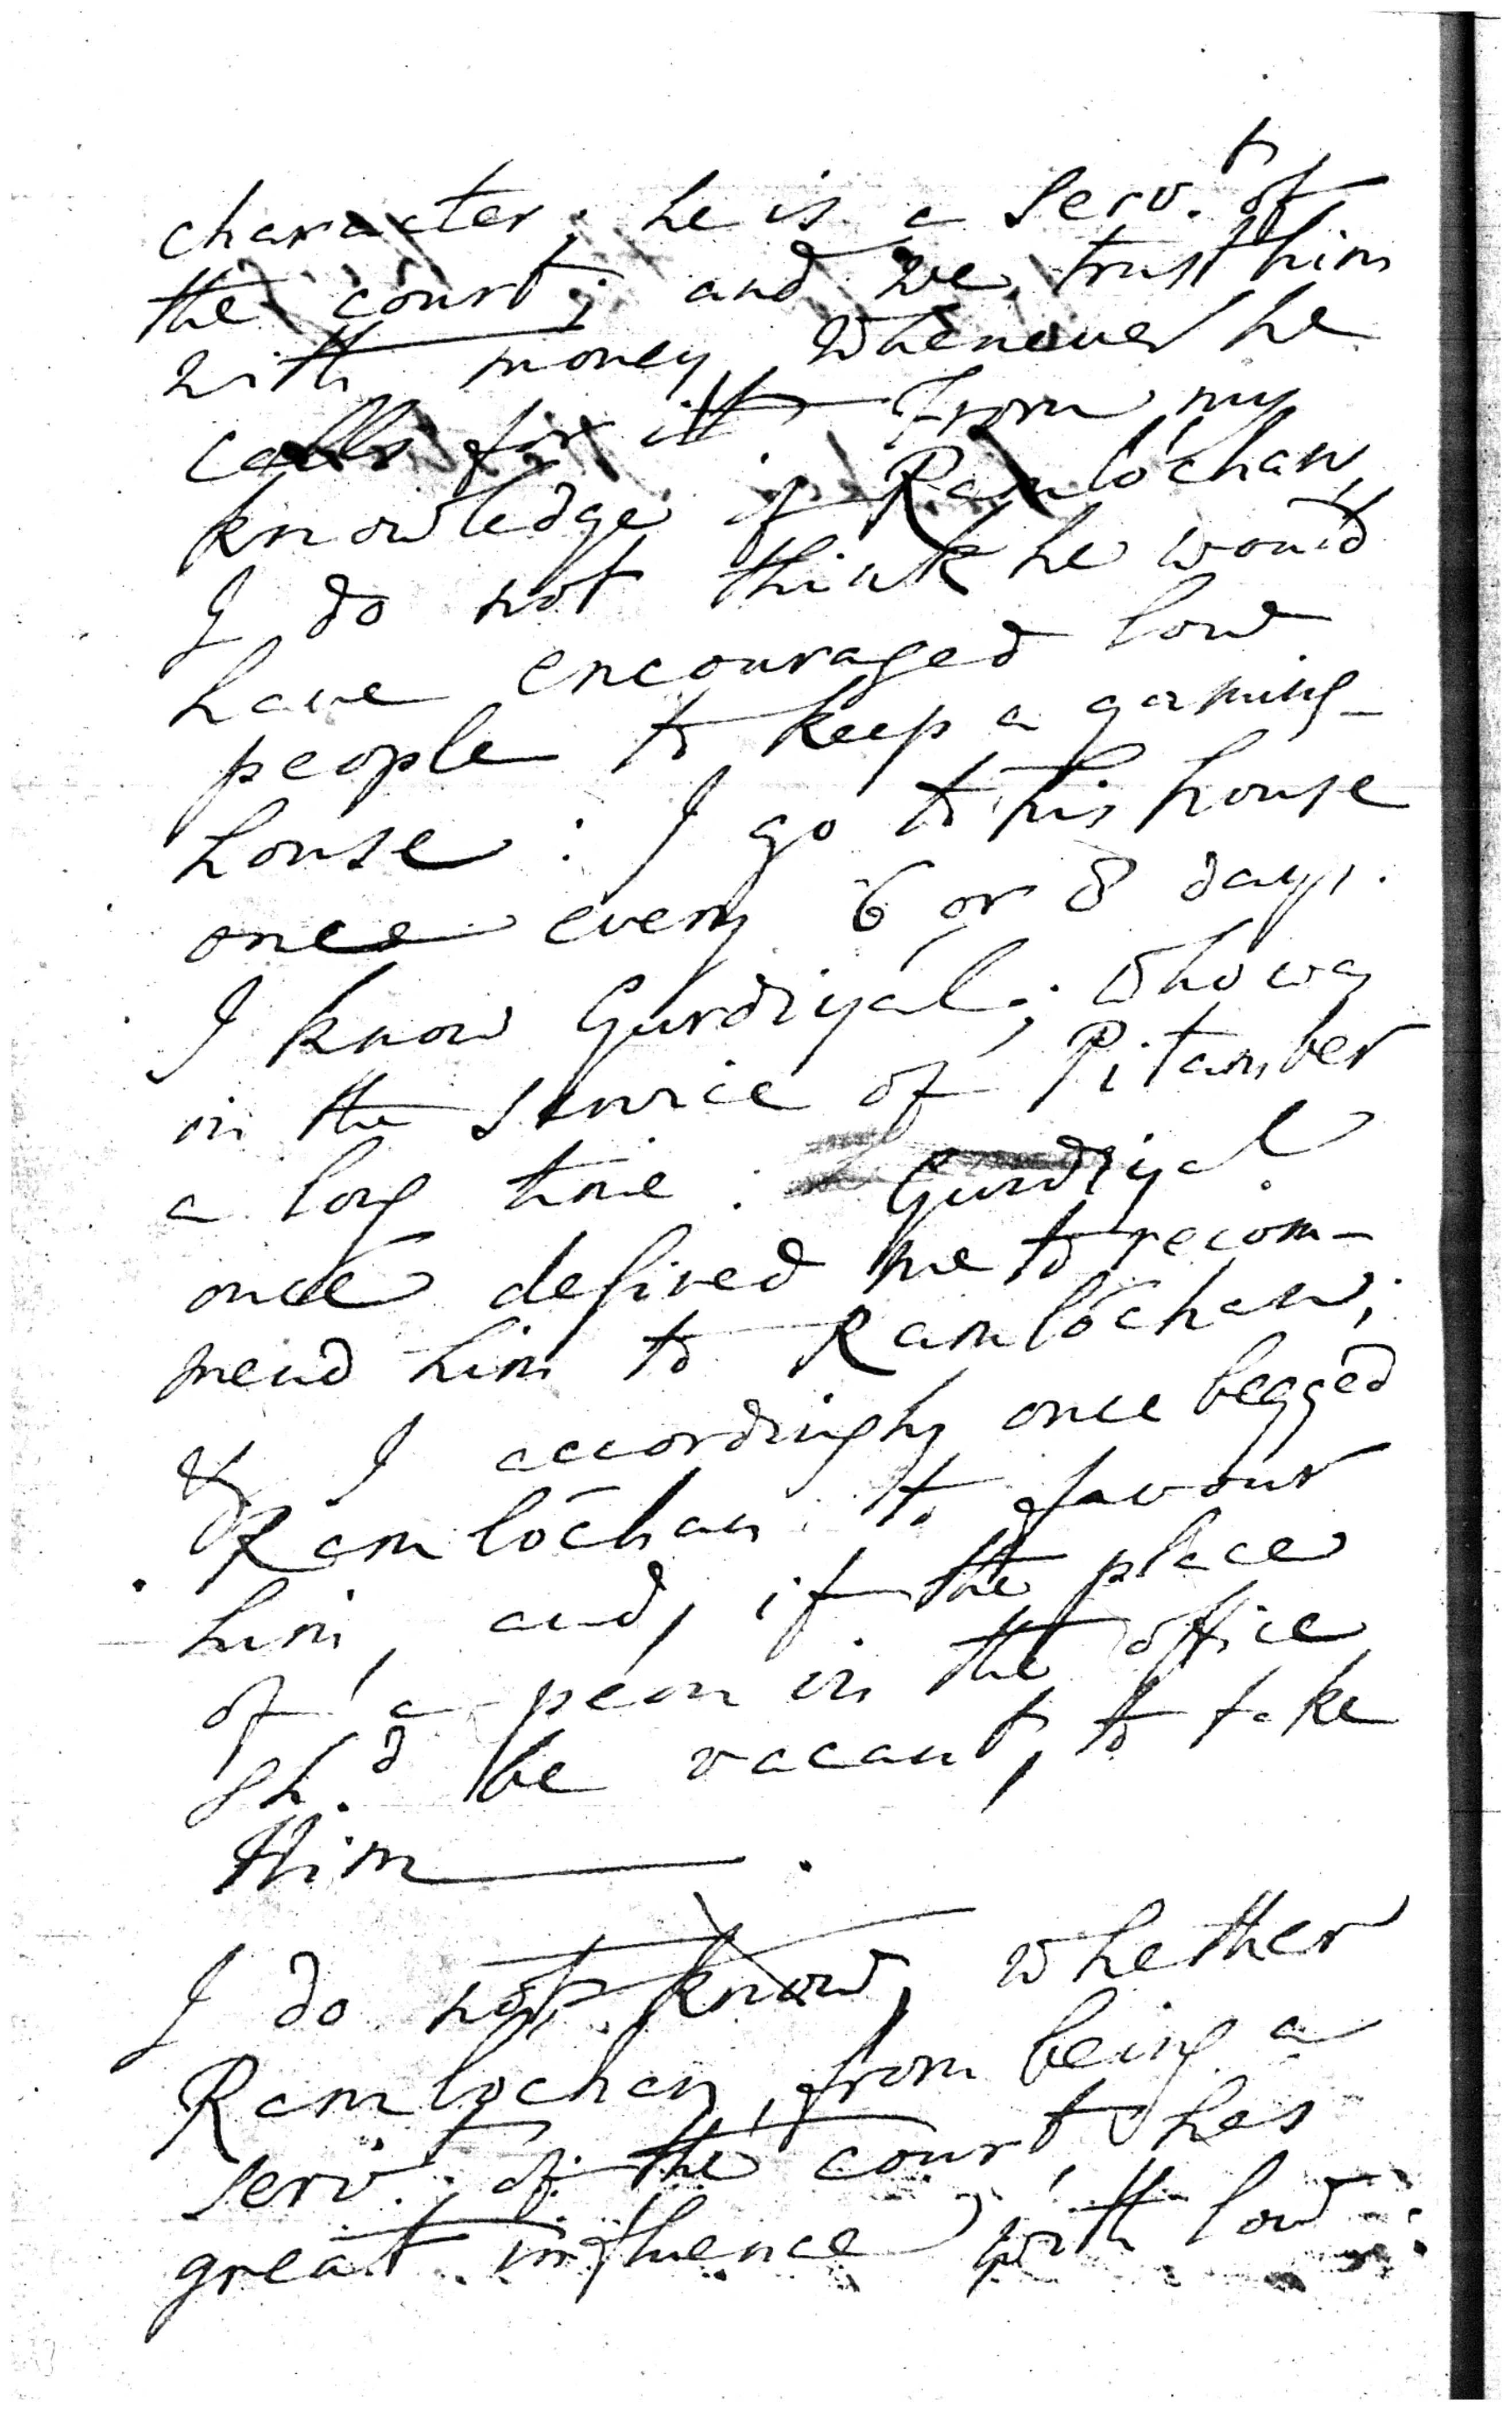 character; he is a Serv.t of
the court; and we trust him
with money, whenever he
calls for it. From my
knowledge of Ramlóchan,
I do not think he would
have encouraged low
people to keep a gaming-
house: I go to his house
once every 6 or 8 days.
I know Gurdiyal; who was
in the service of Pitamber
a long time: Gurdiyal
once desired me to recom-
mend him to Ramlóchan;
& I accordingly once begged
Ramlóchan to favour
him, and, if the place
of a peon in the office
sh.d be vacant, to take
Him.
I do not know, whether
Ramlochan, from being a
serv.t of the court, has
great influence with low